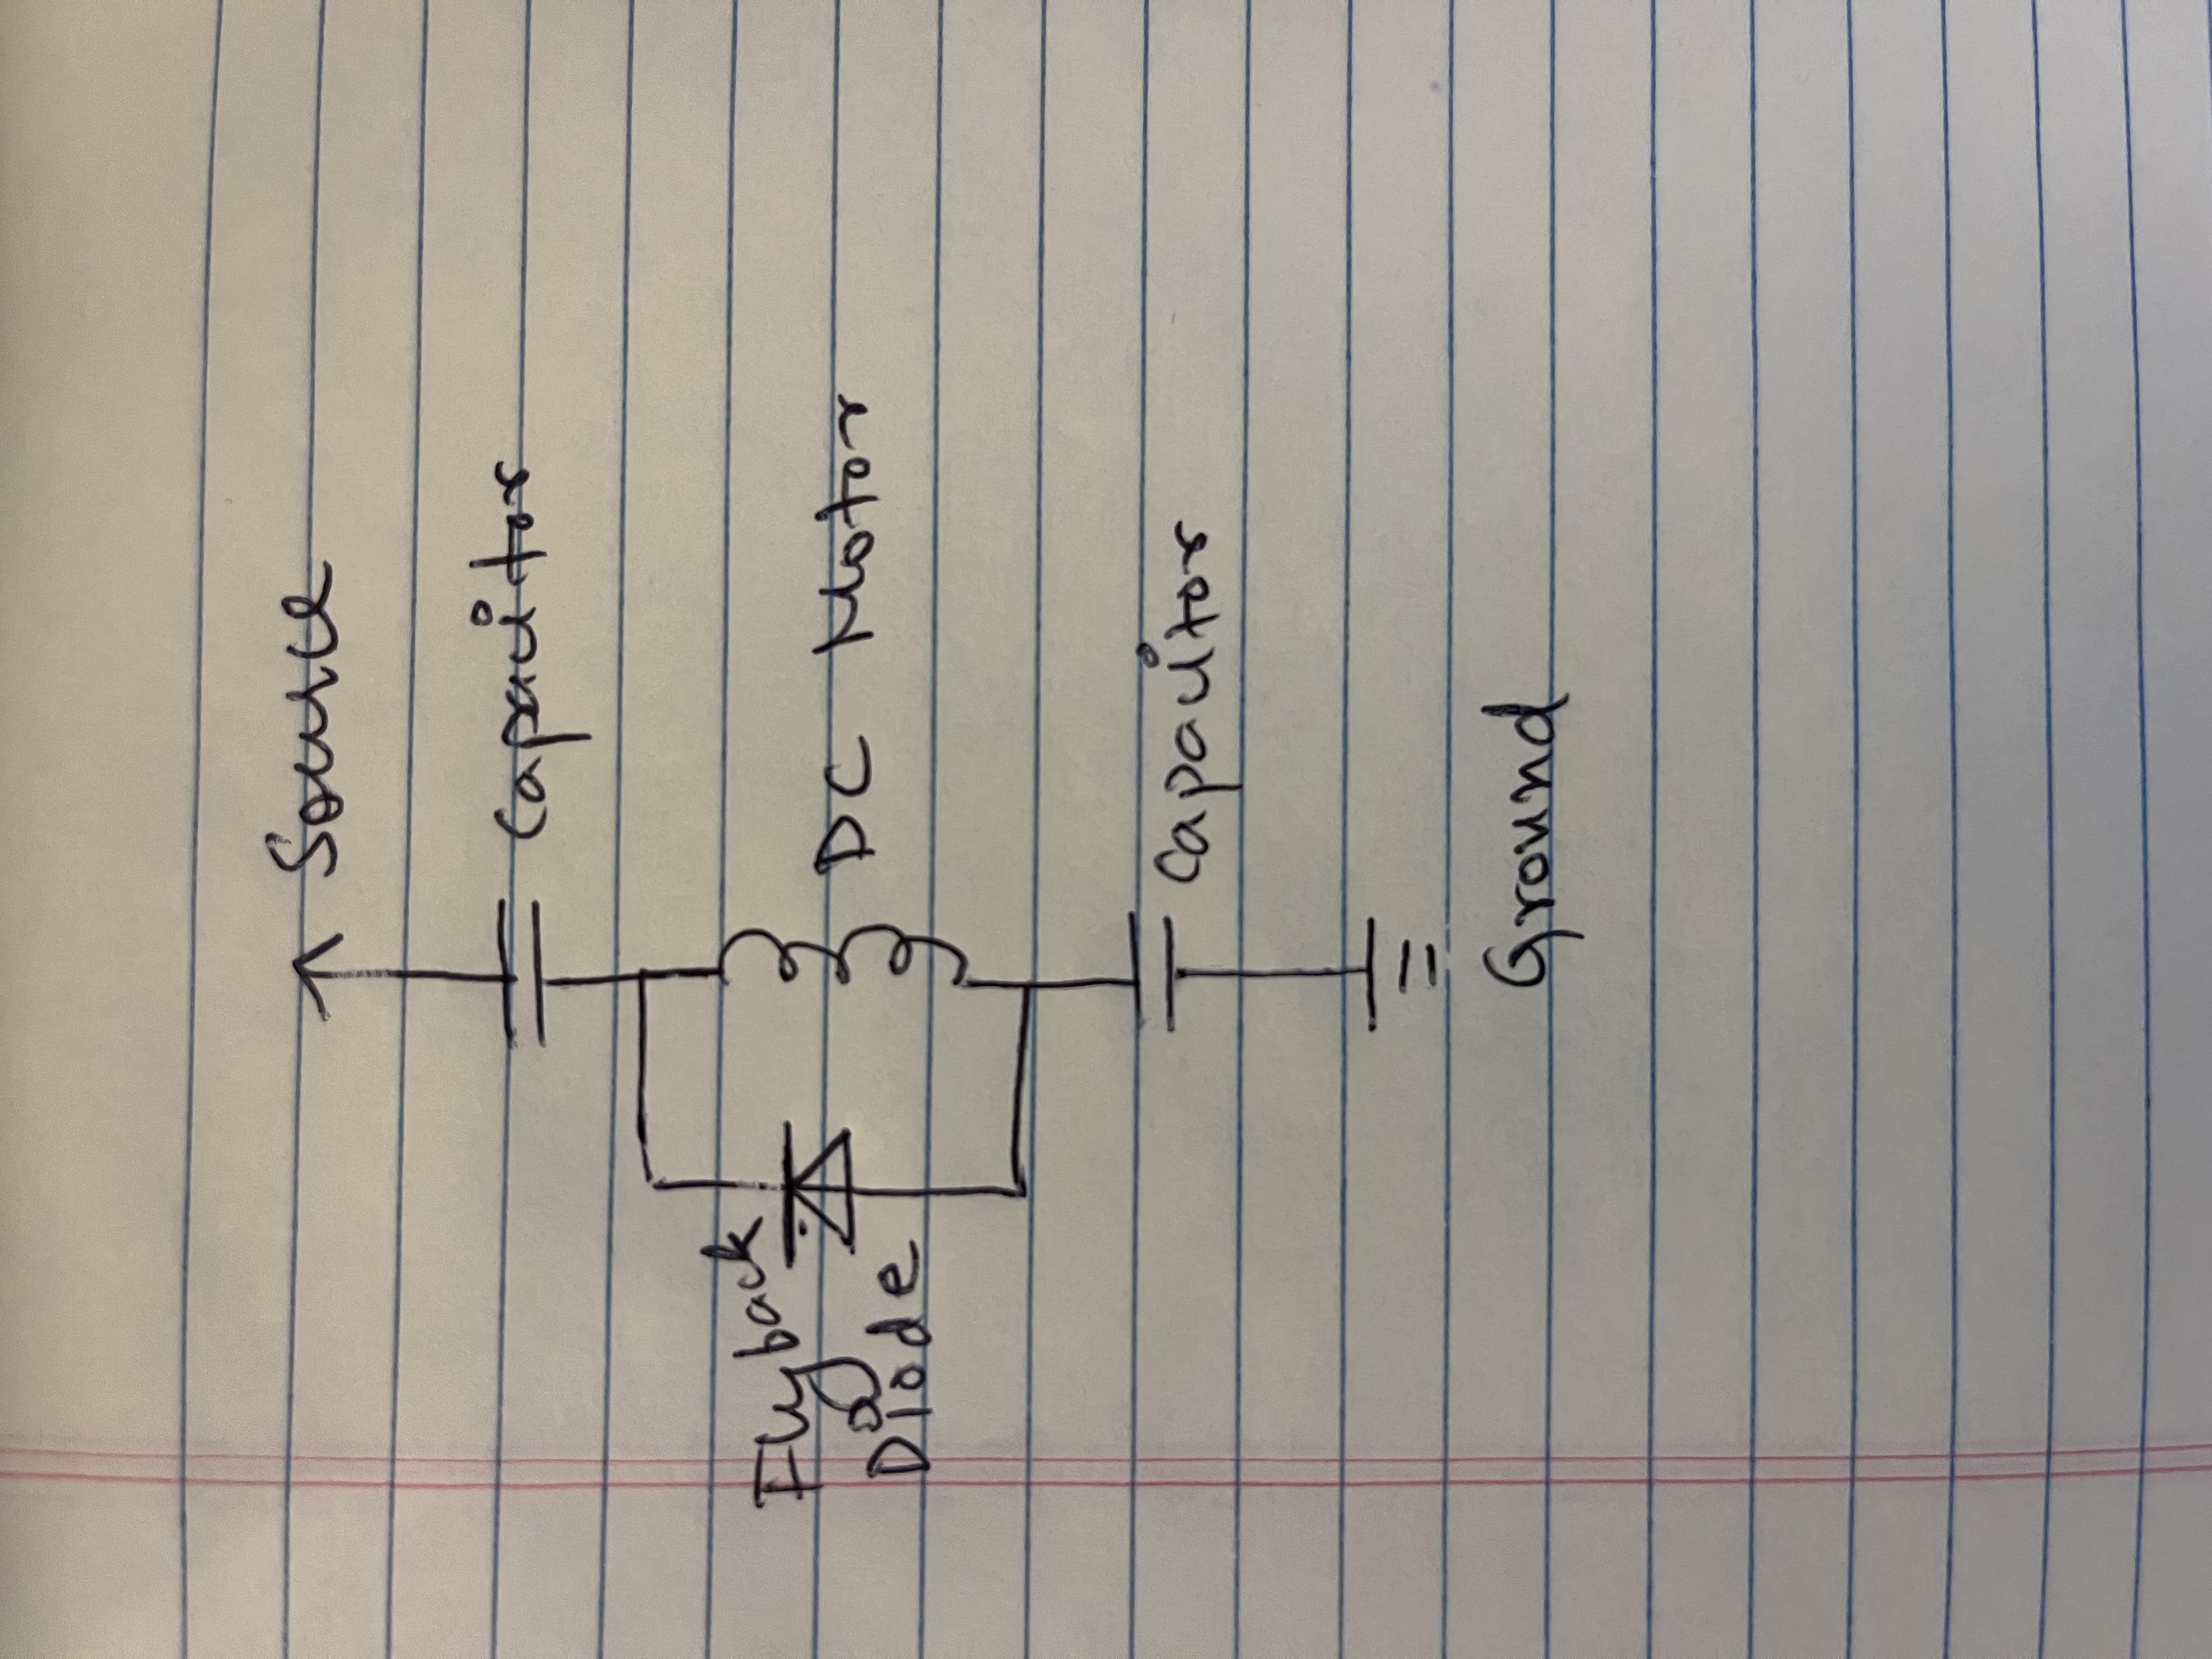 Source
Capacitor
Flyback
Diode
DC Motor
Capacitor
Ground